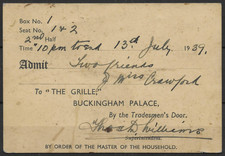 Box No. 1
Seat No. 1 & 2
2nd Half
Time 10 pm to end 13th July 1939.
Admit Two friends
Miss Crawford
To "THE GRILLE,"
BUCKINGHAM PALACE,
By the Tradesmen's Door.
Williams
Superintendent.
BY ORDER OF THE MASTER OF THE HOUSEHOLD.